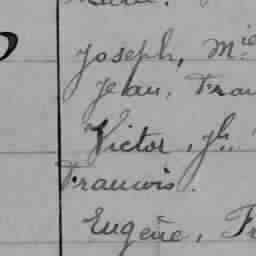 Joseph, Mie
Jean, Fran
Victor, Jh.
Francois.
Eugène, Fr